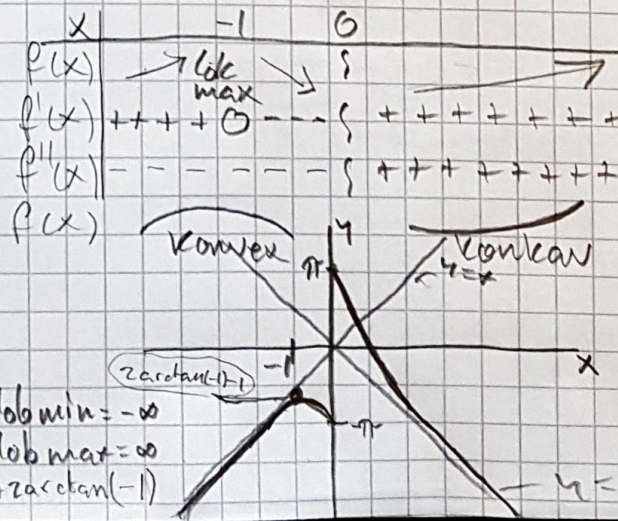 x -1 0
f(x) → lok → ⌇ →
max
f'(x) + + + + 0 - - - ⌇ + + + + + + +
f''(x) - - - - - - - - ⌇ + + + + + + +
f(x)
konvex y konkav
π y=x
-1 x
2arctan(-1)-1
-π
lob min = -∞
lob max = ∞
2arctan(-1)
y =